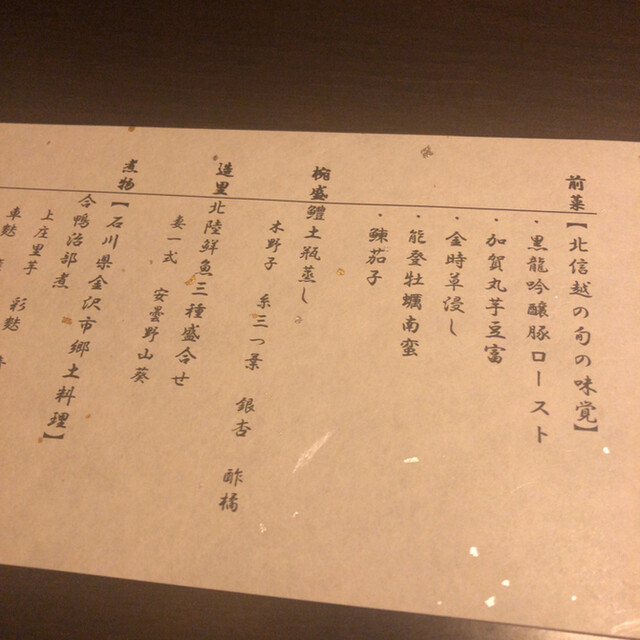 前菜【北信越の旬の味覚】
・黒龍吟醸豚ロースト
・加賀丸芋豆富
・金時草浸し
・能登牡蠣南蛮
・鰊茄子
椀盛 鱧土瓶蒸し
木野子 糸三つ葉 銀杏 酢橘
造里 北陸鮮魚三種盛合せ
妻一式 安曇野山葵
煮物【石川県金沢市郷土料理】
合鴨治部煮
上庄里芋 彩麩
車麩